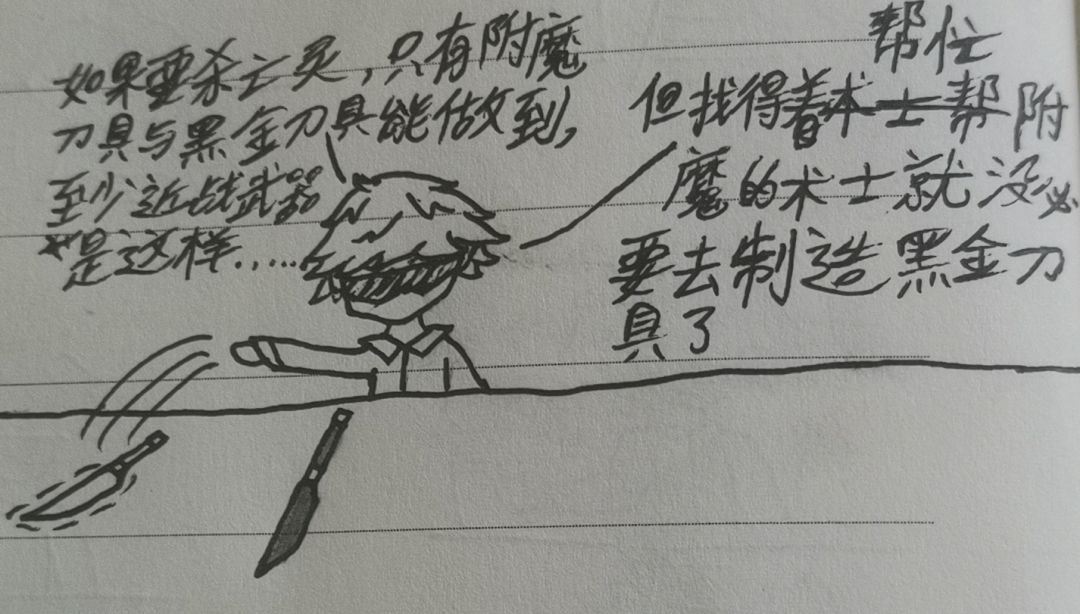 如果要杀亡灵，只有附魔
刀具与黑金刀具能做到，
至少近战武器
是这样……
帮忙
但找得着术士帮附
魔的术士就没必
要去制造黑金刀
具了